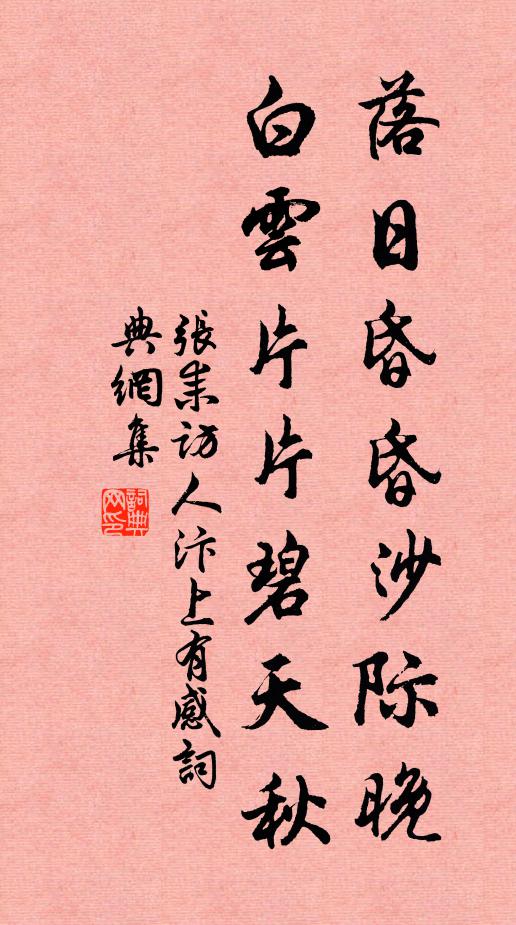 落日昏昏沙际晚
白雲片片碧天秋
張耒访人汴上有感詞
典網集
詞典
网印